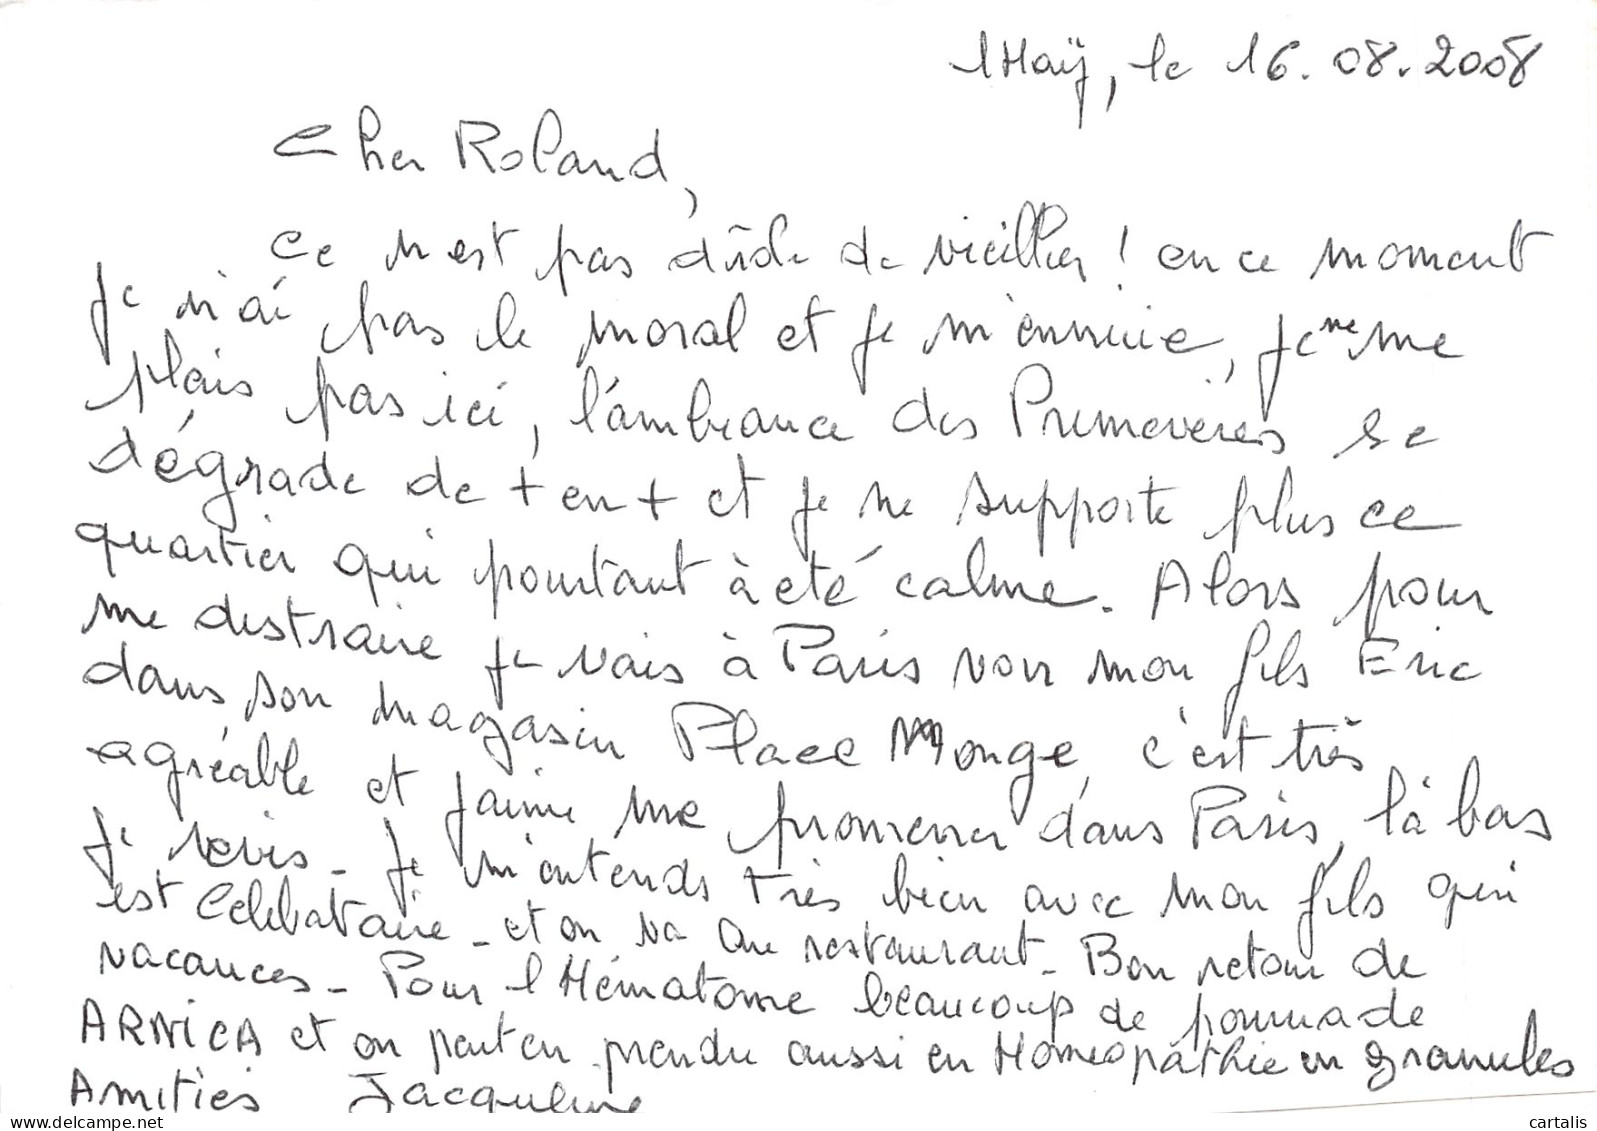 lHaÿ, le 16.08.2008
Cher Roland,
Ce n'est pas drôle de vieillir ! en ce moment
je n'ai pas le moral et je m'ennuie, je ne me
plais pas ici, l'ambiance des Primevères se
dégrade de + en + et je ne supporte plus ce
quartier qui pourtant à été calme. Alors pour
me distraire je vais à Paris voir mon fils Eric
dans son magasin Place Monge, c'est très
agréable et j'aime me promener dans Paris, là bas
je revis - Je m'entends très bien avec mon fils qui
est Célibataire - et on va au restaurant - Bon retour de
vacances - Pour l'Hématome beaucoup de pommade
ARNICA et on peut en prendre aussi en Homéopathie en granules
Amitiés Jacqueline
cartalis